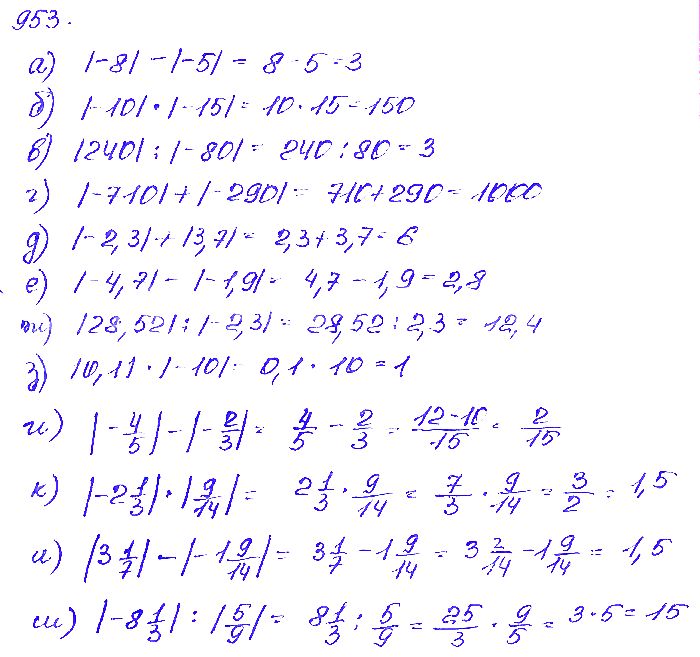 953.
а) |-8| - |-5| = 8 - 5 = 3
б) |-10| · |-15| = 10 · 15 = 150
в) |240| : |-80| = 240 : 80 = 3
г) |-710| + |-290| = 710 + 290 = 1000
д) |-2,3| + |3,7| = 2,3 + 3,7 = 6
е) |-4,7| - |-1,9| = 4,7 - 1,9 = 2,8
ж) |28,52| : |-2,3| = 28,52 : 2,3 = 12,4
з) |0,1| · |-10| = 0,1 · 10 = 1
и) |-4/5| - |-2/3| = 4/5 - 2/3 = (12-10)/15 = 2/15
к) |-2 1/3| · |9/14| = 2 1/3 · 9/14 = 7/3 · 9/14 = 3/2 = 1,5
л) |3 1/7| - |-1 9/14| = 3 1/7 - 1 9/14 = 3 2/14 - 1 9/14 = 1,5
м) |-8 1/3| : |5/9| = 8 1/3 : 5/9 = 25/3 · 9/5 = 3 · 5 = 15